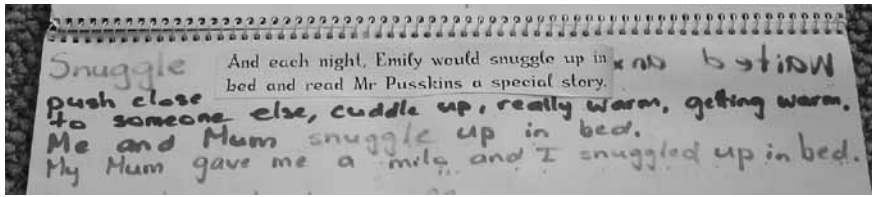 Snuggle
And each night, Emily would snuggle up in
bed and read Mr Pusskins a special story.
push close
to someone else, cuddle up, really warm, getting warm.
Me and Mum snuggle up in bed.
My Mum gave me a milo and I snuggled up in bed.